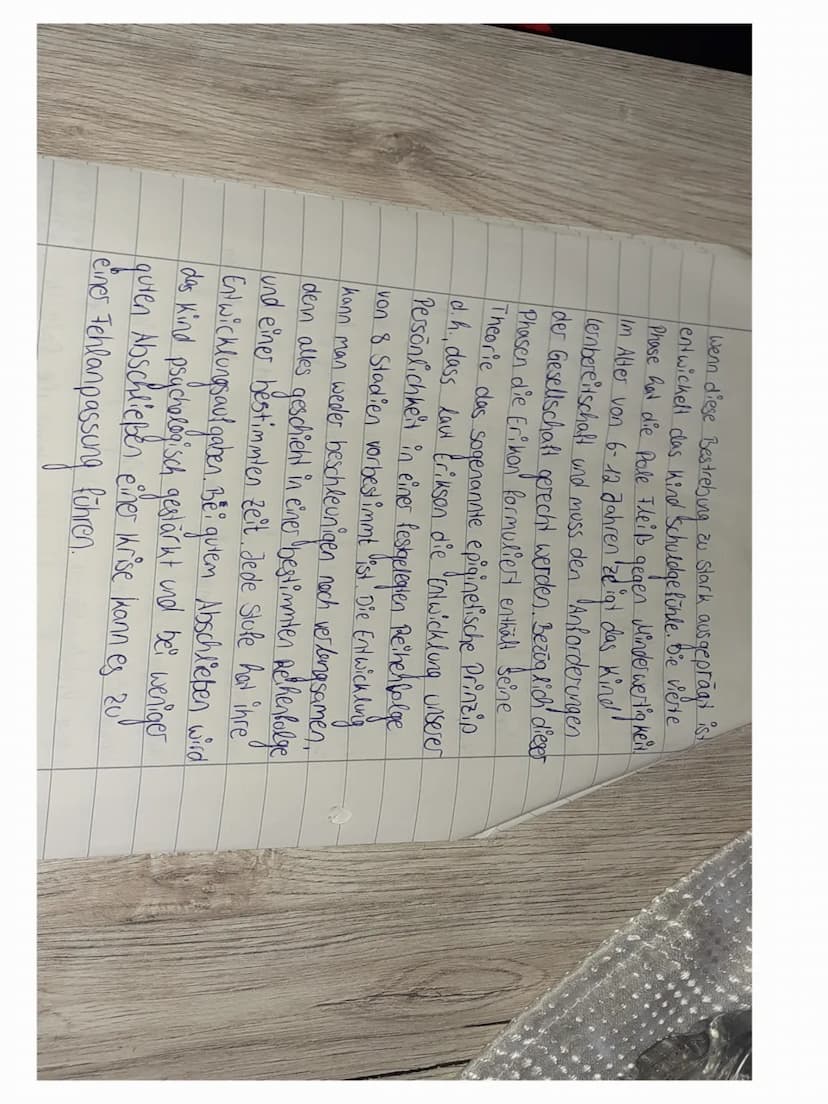 wenn diese Bestrebung zu stark ausgeprägt ist
entwickelt das Kind Schuldgefühle. Die vierte
Phase hat die Pole Fleiß gegen Minderwertigkeit
im Alter von 6-12 Jahren zeigt das Kind
Lernbereitschaft und muss den Anforderungen
der Gesellschaft gerecht werden. Bezüglich dieser
Phasen die Erikon formuliert enthält seine
Theorie das sogenannte epiginetische Prinzip
d.h, dass laut Erikson die Entwicklung unserer
Pesönlichkeit in einer festgelegten Reihenfolge
von 8 Stadien vorbestimmt ist. Die Entwicklung
kann man weder beschleunigen noch verlangsamen,
denn alles geschieht in einer bestimmten Reihenfolge
und einer bestimmten Zeit. Jede Stufe hat ihre
Entwicklungsaufgaben. Bei gutem Abschließen wird
das Kind psychologisch gestärkt und bei weniger
guten Abschließen einer Krise kann es zu
einer Fehlanpassung führen.